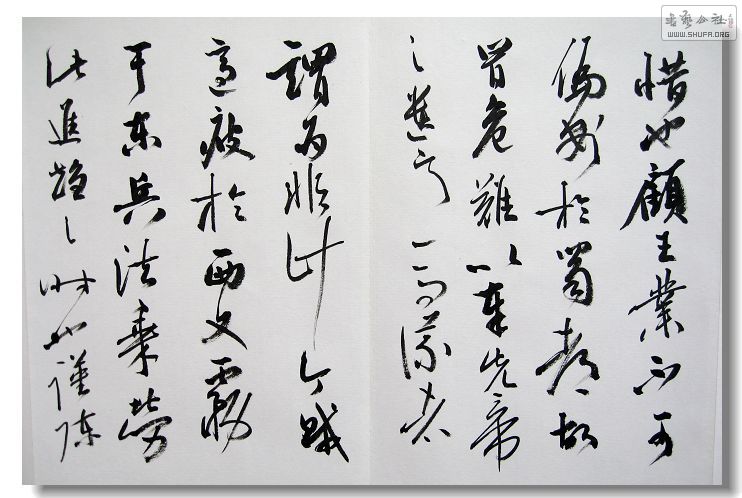 書藝公社
WWW.SHUFA.ORG
惜也顧王業不可
偏安於蜀都故
冒危難以奉先帝
之遺意而議者
謂為非計今賊
適疲於西又務
于東兵法乘勞
此進趨之時也謹陳